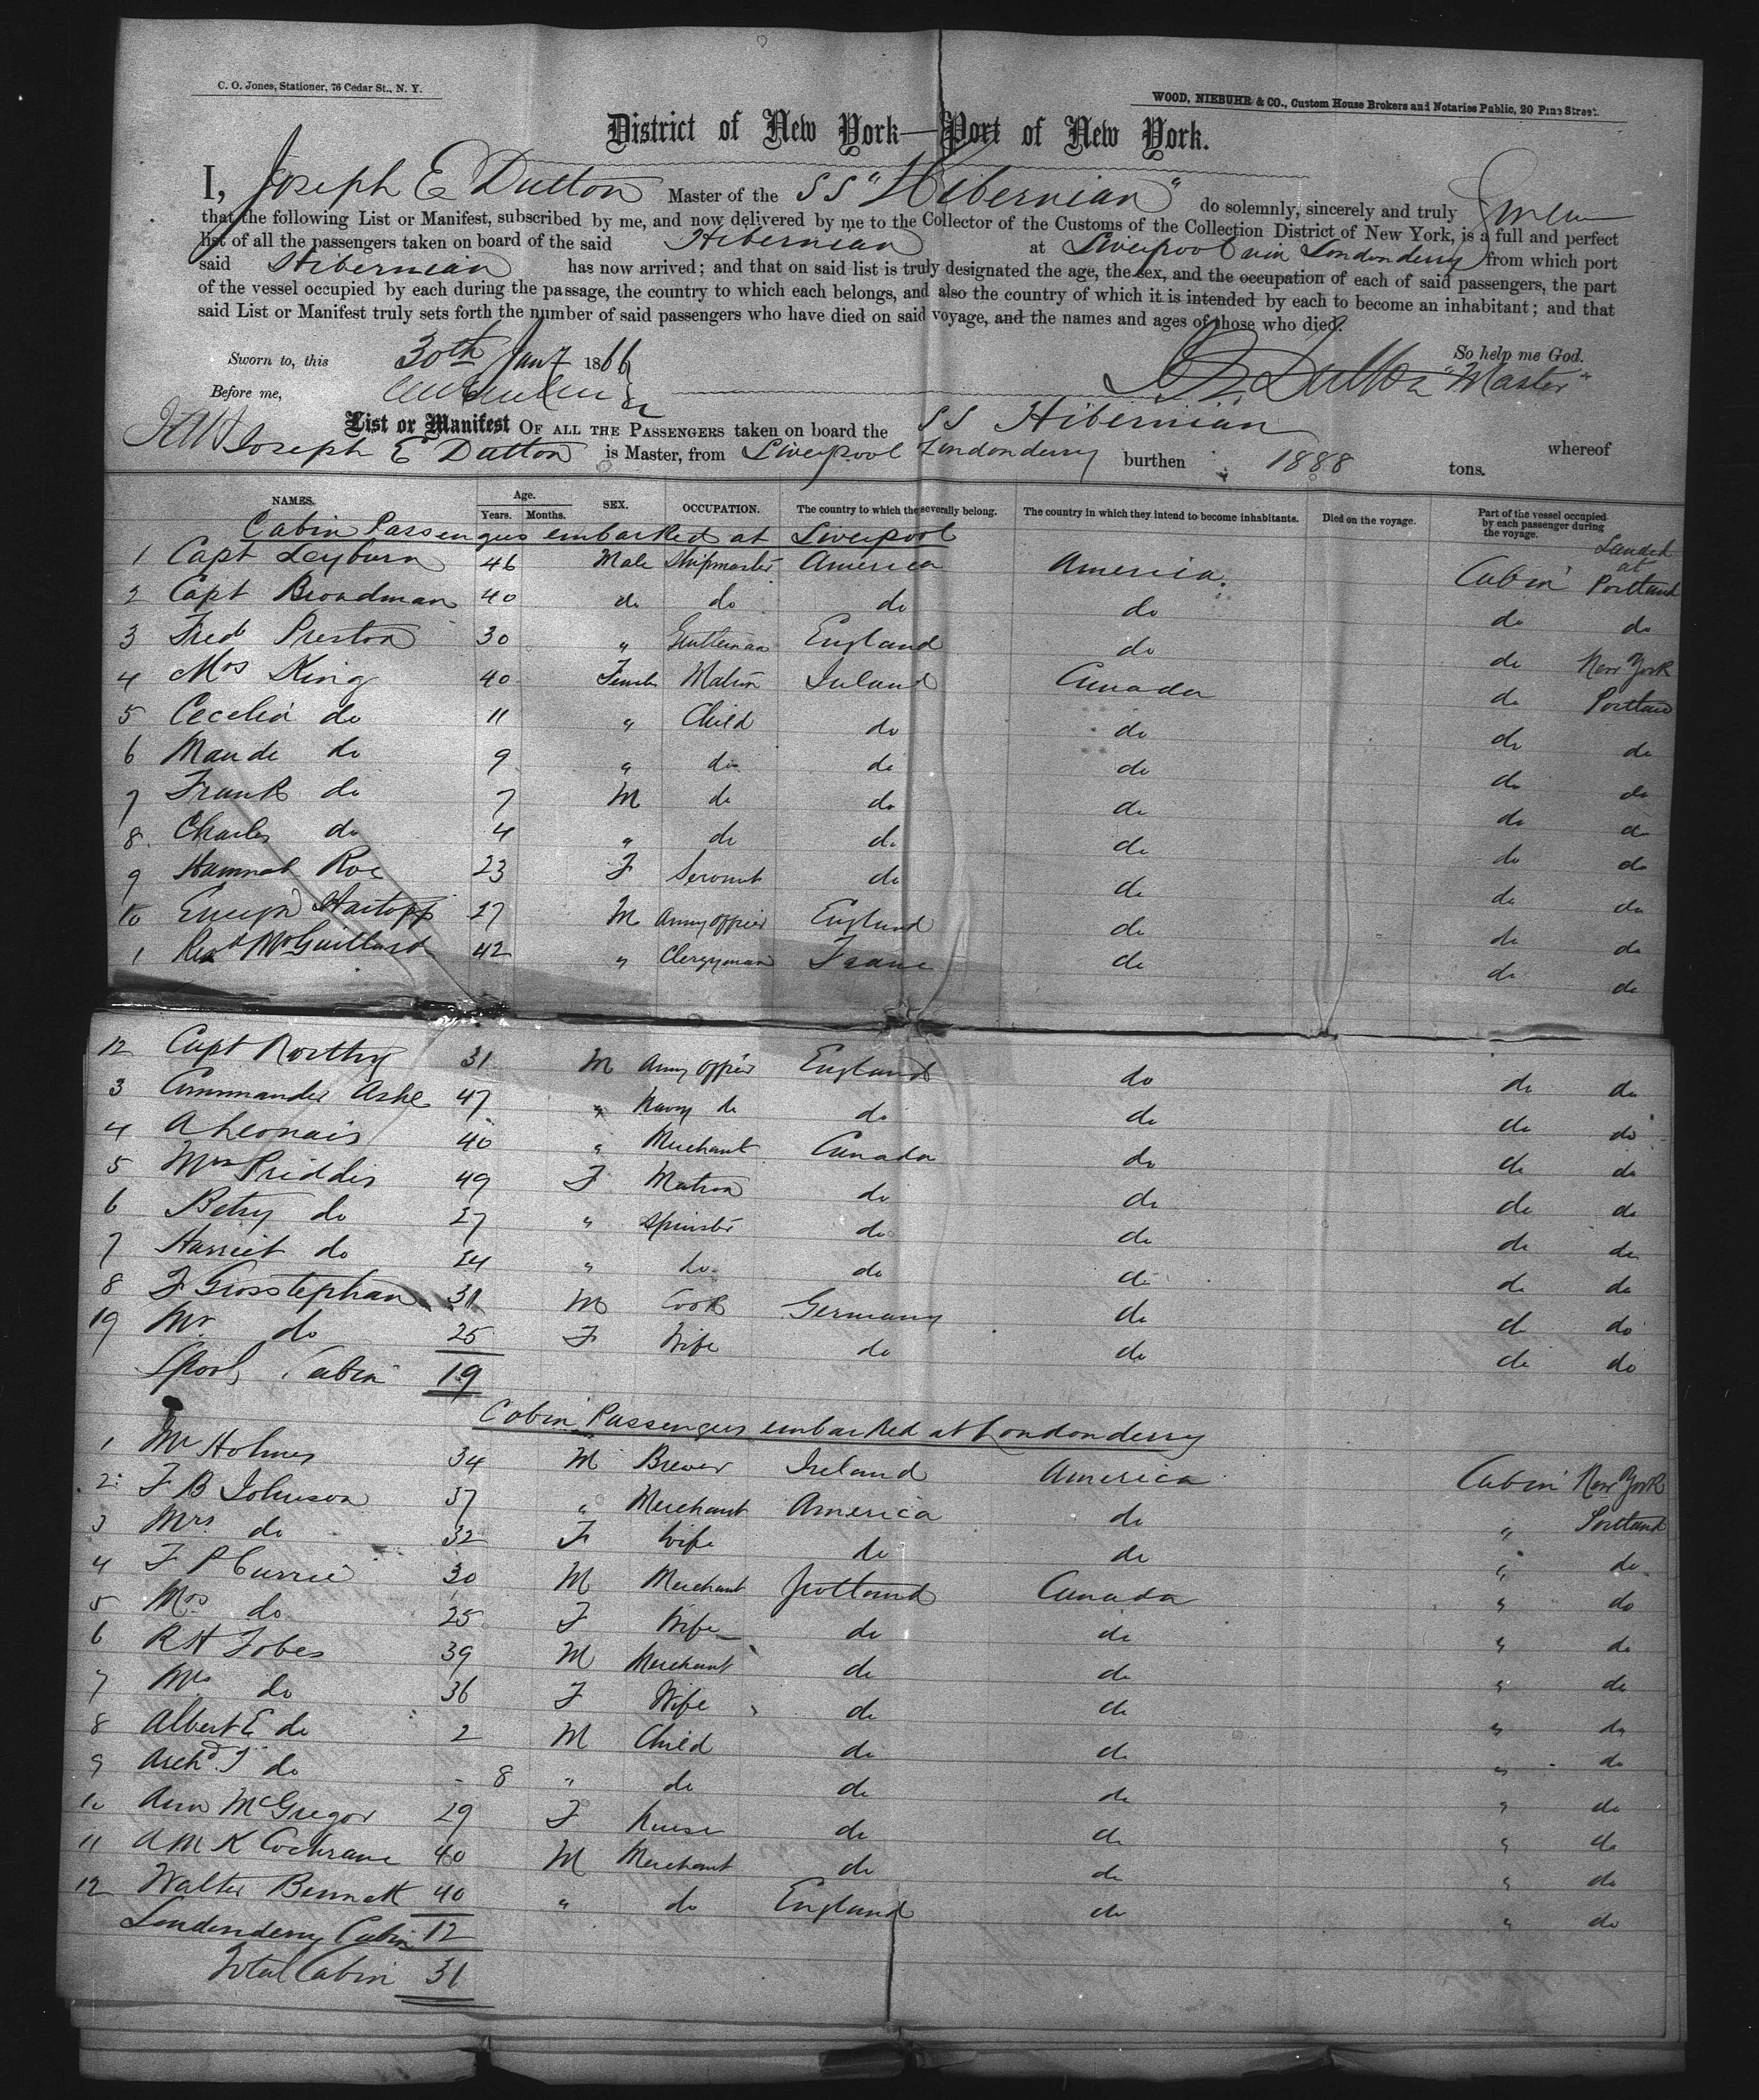 C. O. Jones, Stationer, 76 Cedar St., N. Y.
WOOD, NIEBUHR & CO., Custom House Brokers and Notaries Public, 20 Pine Street.
District of New York—Port of New York.
I, Joseph E Dutton Master of the SS "Hibernian" do solemnly, sincerely and truly
that the following List or Manifest, subscribed by me, and now delivered by me to the Collector of the Customs of the Collection District of New York, is a full and perfect
list of all the passengers taken on board of the said Hibernian at Liverpool via Londonderry from which port
said Hibernian has now arrived; and that on said list is truly designated the age, the sex, and the occupation of each of said passengers, the part
of the vessel occupied by each during the passage, the country to which each belongs, and also the country of which it is intended by each to become an inhabitant; and that
said List or Manifest truly sets forth the number of said passengers who have died on said voyage, and the names and ages of those who died.
Sworn to, this 30th Jany 1866 So help me God.
Before me, Dutton "Master"
List or Manifest OF ALL THE PASSENGERS taken on board the SS Hibernian whereof
Joseph E Dutton is Master, from Liverpool Londonderry burthen 1888 tons.
NAMES. Age. Years. Months. SEX. OCCUPATION. The country to which they severally belong. The country in which they intend to become inhabitants. Died on the voyage. Part of the vessel occupied by each passenger during the voyage.
Cabin Passengers embarked at Liverpool Landed at
1 Capt Leyburn 46 Male Shipmaster America America Cabin Portland
2 Capt Broadman 40 do do do do do do
3 Fred Preston 30 " Gentleman England do do New York
4 Mrs King 40 Female Matron Ireland Canada do Portland
5 Cecelia do 11 " Child do do do do
6 Maude do 9 " do do do do do
7 Frank do 7 M do do do do do
8 Charles do 4 " do do do do do
9 Hannah Roe 23 F Servant do do do do
10 Hartopp 27 M Army Officer England do do do
1 Revd 42 " Clergyman France do do do
12 Capt Northy 31 M Army Officer England do do do
3 Commander Ashe 47 " Navy do do do do do
4 A Leonais 40 " Merchant Canada do do do
5 Mrs Priddis 49 F Matron do do do do
6 Betsy do 27 " Spinster do do do do
7 Harriet do 24 " do do do do do
8 F Grosstephan 31 M Cook Germany do do do
19 Mrs do 25 F Wife do do do do
Lpool Cabin 19
Cabin Passengers embarked at Londonderry
1 Mr Holmes 34 M Brewer Ireland America Cabin New York
2 F B Johnson 37 " Merchant America do " Portland
3 Mrs do 32 F Wife do do " do
4 F P Currie 30 M Merchant Scotland Canada " do
5 Mrs do 25 F Wife do do " do
6 R H Fobes 39 M Merchant do do " do
7 Mrs do 36 F Wife do do " do
8 Albert E do 2 M Child do do " do
9 Archd T do - 8 " do do do " do
10 Ann McGregor 29 F Nurse do do " do
11 A M K Cochrane 40 M Merchant do do " do
12 Walter Bennett 40 " do England do " do
Londonderry Cabin 12
Total Cabin 31